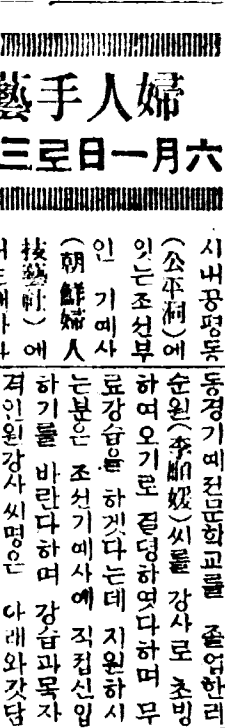 婦人手藝
六月一日로三
시내공평동
(公平洞)에
잇는조선부
인 기예사
(朝鮮婦人
技藝社)에
동경기예전문학교를 졸업한리
순원(李順媛)씨를 강사로 초빙
하여오기로 결뎡하엿다하며 무
료강습을 하겟다는데 지원하시
는분은 조선기예사에 직접신입
하기를 바란다하며 강습과목자
격인원강사씨명은 아래와갓담